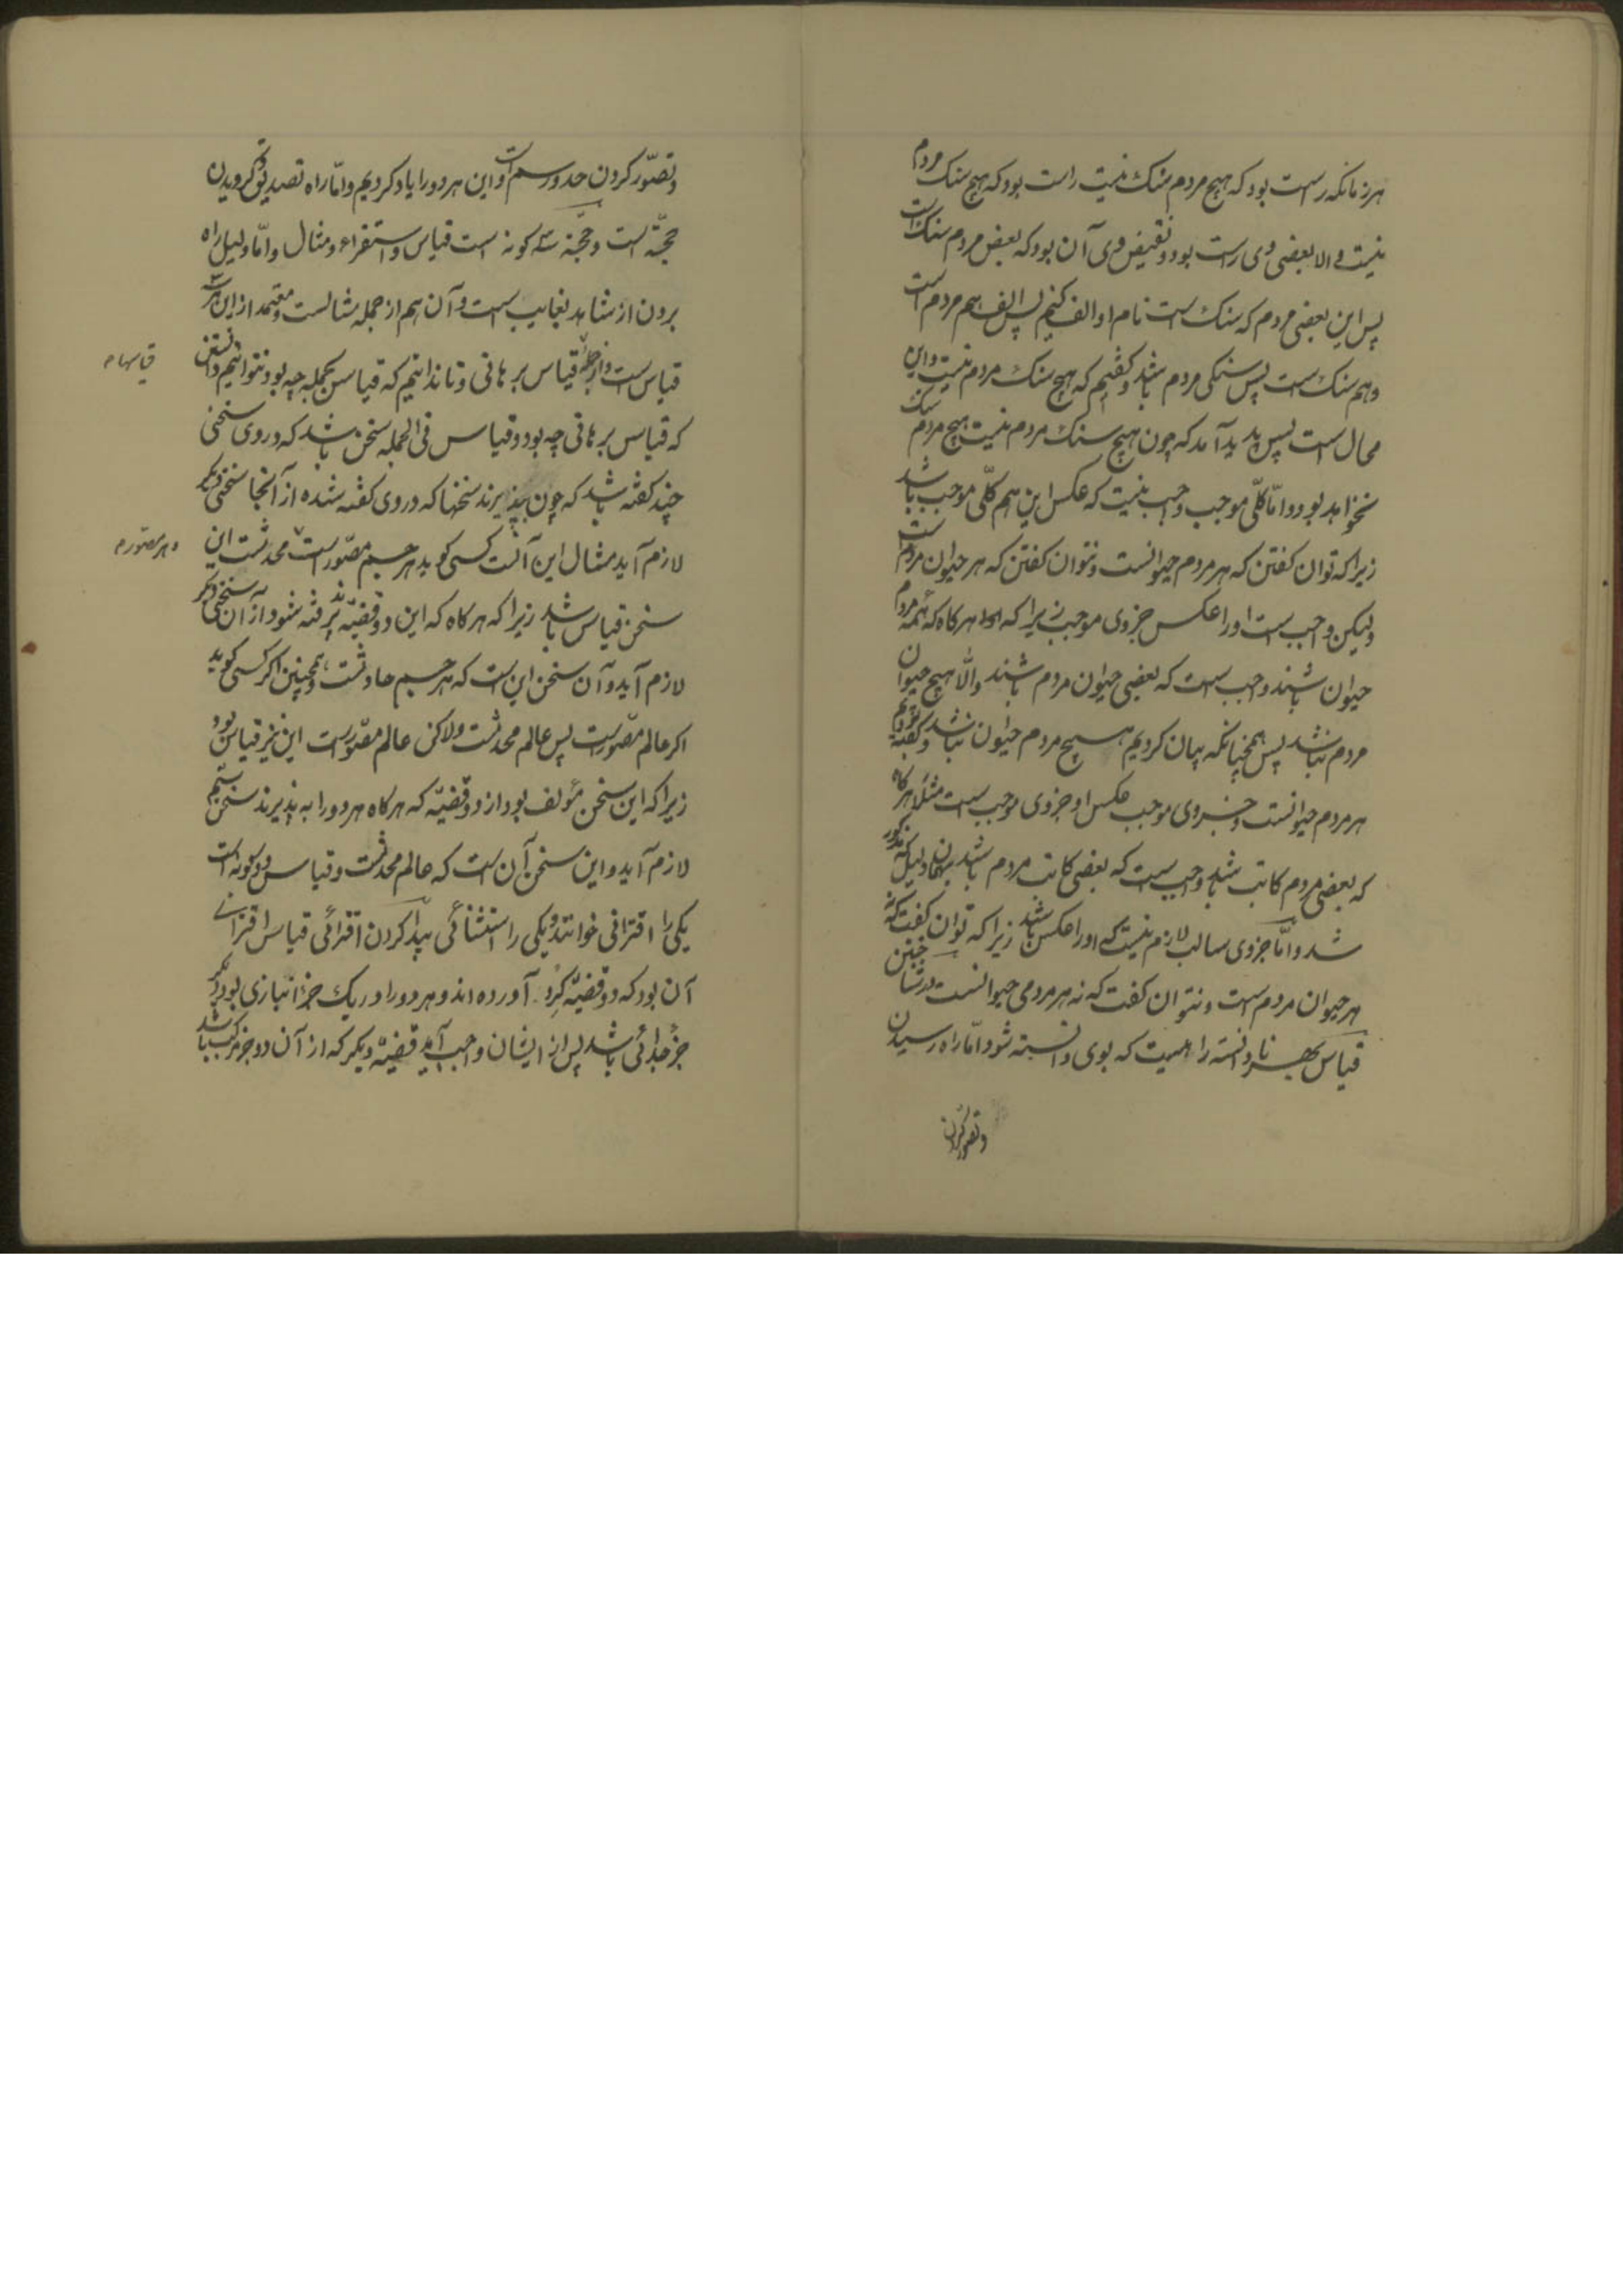 هرزمانکه راست بود که هیچ مردم سنک نیست راست بود که هیچ سنک مردم
نیست و الا بعضی وی راست بود و نقیض وی آن بود که بعض مردم سنک است
پس این بعضی مردم که سنک است نام او الف کنیم پس الف هم مردم است
و هم سنک است پس سنکی مردم باشد و کفتیم که هیچ سنک مردم نیست و این
محال است پس پدید آمد که چون هیچ سنک مردم نیست هیچ مردم سنک
نخواهد بود و اما کلّی موجب واجب نیست که عکس این هم کلّی موجب باشد
زیرا که توان کفتن که هر مردم حیوانست و نتوان کفتن که هر حیوان مردم است
ولیکن واجب است او را عکس جزوی موجب زیرا که هرکاه که همه مردم
حیوان باشند واجب است که بعضی حیوان مردم باشند والّا هیچ حیوان
مردم نباشد پس همچنانکه بیان کردیم هیچ مردم حیوان نباشد و کفته بودیم
هر مردم حیوانست و جزوی موجب عکس او جزوی موجب است مثلا هرکاه
که بعضی مردم کاتب باشد واجب است که بعضی کاتب مردم باشد بهمان دلیل که مذکور
شد و امّا جزوی سالب لازم نیست که او را عکس باشد زیرا که توان کفت که نه
هر حیوان مردم است و نتوان کفت که نه هر مردمی حیوانست در شناختن
قیاس بهر نادانسته را هست که بوی دانسته شود امّا راه رسیدن
و تصور کردن
و تصوّر کردن حد و رسم است و این هر دو را یاد کردیم و امّا راه تصدیق و کرویدن
حجّة است و حجّة سه کونه است قیاس و استقراء و مثال و امّا دلیل راه
بردن از شاهد بغایب است و آن هم از جمله مثالست و معتمد از این هر سه
قیاس است و از جمله قیاس برهانی و تا ندانیم که قیاس بجمله چه بود نتوانیم دانستن
قیاسهاء
که قیاس برهانی چه بود و قیاس فی الجمله سخن باشد که در وی سخنی
چند کفته باشد که چون بپذیرند سخنها که در وی کفته شده از آنجا سخنی دیکر
لازم آید مثال این آنست کسی کوید هر جسم مصّور است محدثست این
سخن قیاس باشد زیرا که هرکاه که این دو قضیّه پذیرفته شود از آن سخنی دیکر
لازم آید و آن سخن این است که هر جسم حادثست و همچنین اکر کسی کوید
اکر عالم مصّور است پس عالم محدثست ولاکن عالم مصّور است این نیز قیاس بود
زیرا که این سخن مؤلف بود از دو قضیّه که هرکاه هر دو را به پذیرند سخن سیّم
لازم آید و این سخن آن است که عالم محدثست و قیاس دو کونه است
یکی را اقترانی خوانند و یکی را استثنائی پیدا کردن اقترانی قیاس اقترانی
آن بود که دو قضیّه کرد آورده اند و هر دو را در یک جزء انبازی بود دیکر
جزء جدائی باشد پس از ایشان واجب آید قضیّه دیکر که از آن دو جزء مرکب باشد